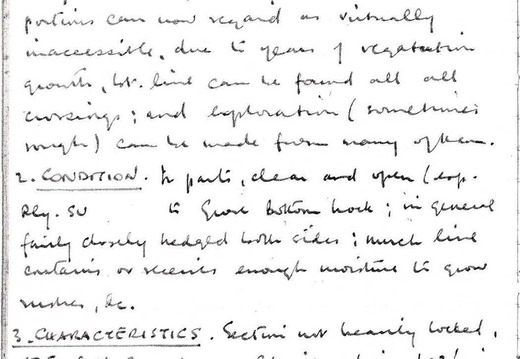 portions can now regard as virtually
inaccessible, due to years of vegetation
growth, but line can be found at all
crossings; and exploration (sometimes
rough) can be made from many of them.
2. CONDITION. In parts, clear and open (esp.
Rly. SU to Grove Bottom lock; in general
fairly closely hedged both sides; much line
contains or receives enough moisture to grow
rushes, &c.
3. CHARACTERISTICS. Section not heavily locked,